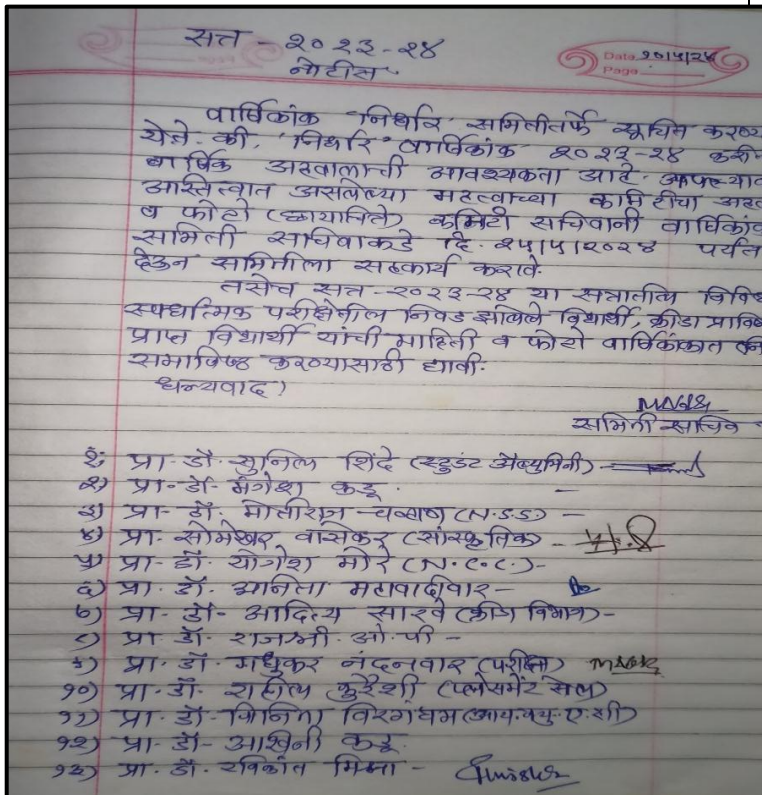 सत्त - २०२३-२४
Date १०/५/२४
नोटीस
Page
वार्षिकांक 'निर्धार' समितीतर्फे सूचित करण्या
येते. की, 'निर्धार' वार्षिकांक २०२३-२४ करी
वार्षिक अहवालाची आवश्यकता आहे.
आस्तित्वात असलेल्या महत्वाच्या कामिटीचा
व फोटो (छायाचित्रे) कमिटी सचिवानी वार्षिकांक
समिती सचिवाकडे दि. १५/५/२०२४ पर्यंत
देऊन समितीला सहकार्य करावे.
तसेच सत्त-२०२३-२४ या सत्रातील विविध
स्पर्धात्मक परीक्षेतील निवड झालेले विद्यार्थी, क्रीडा
प्राप्त विद्यार्थी यांची माहिती व फोटो वार्षिकांकात
समाविष्ठ करण्यासाठी द्यावी.
धन्यवाद)
समिती सचिव
१) प्रा. डॉ. सुनिल शिंदे (स्टुडंट अॅल्युमिनी)
२) प्रा. डॉ. मंगेश कडू.
३) प्रा. डॉ. मोतीराम चव्हाण (N.S.S) -
४) प्रा. सोमेश्वर वासेकर (सांस्कृतिक) -
५) प्रा. डॉ. योगेश मोरे (N.C.C.)-
६) प्रा. डॉ. अनिता महावादीवार -
७) प्रा. डॉ. आदित्य सारवे (क्रीडा विभाग)-
८) प्रा. डॉ. राजश्री. ओ. पी -
९) प्रा. डॉ. मधुकर नंदनवार (परीक्षा)
१०) प्रा. डॉ. राहील कुरैशी (प्लेसमेंट सेल)
११) प्रा. डॉ. विनिता विरगंधम (आय.क्यु.ए.सी)
१२) प्रा. डॉ. आश्विनी कडू.
१३) प्रा. डॉ. रविकांत मिश्रा -